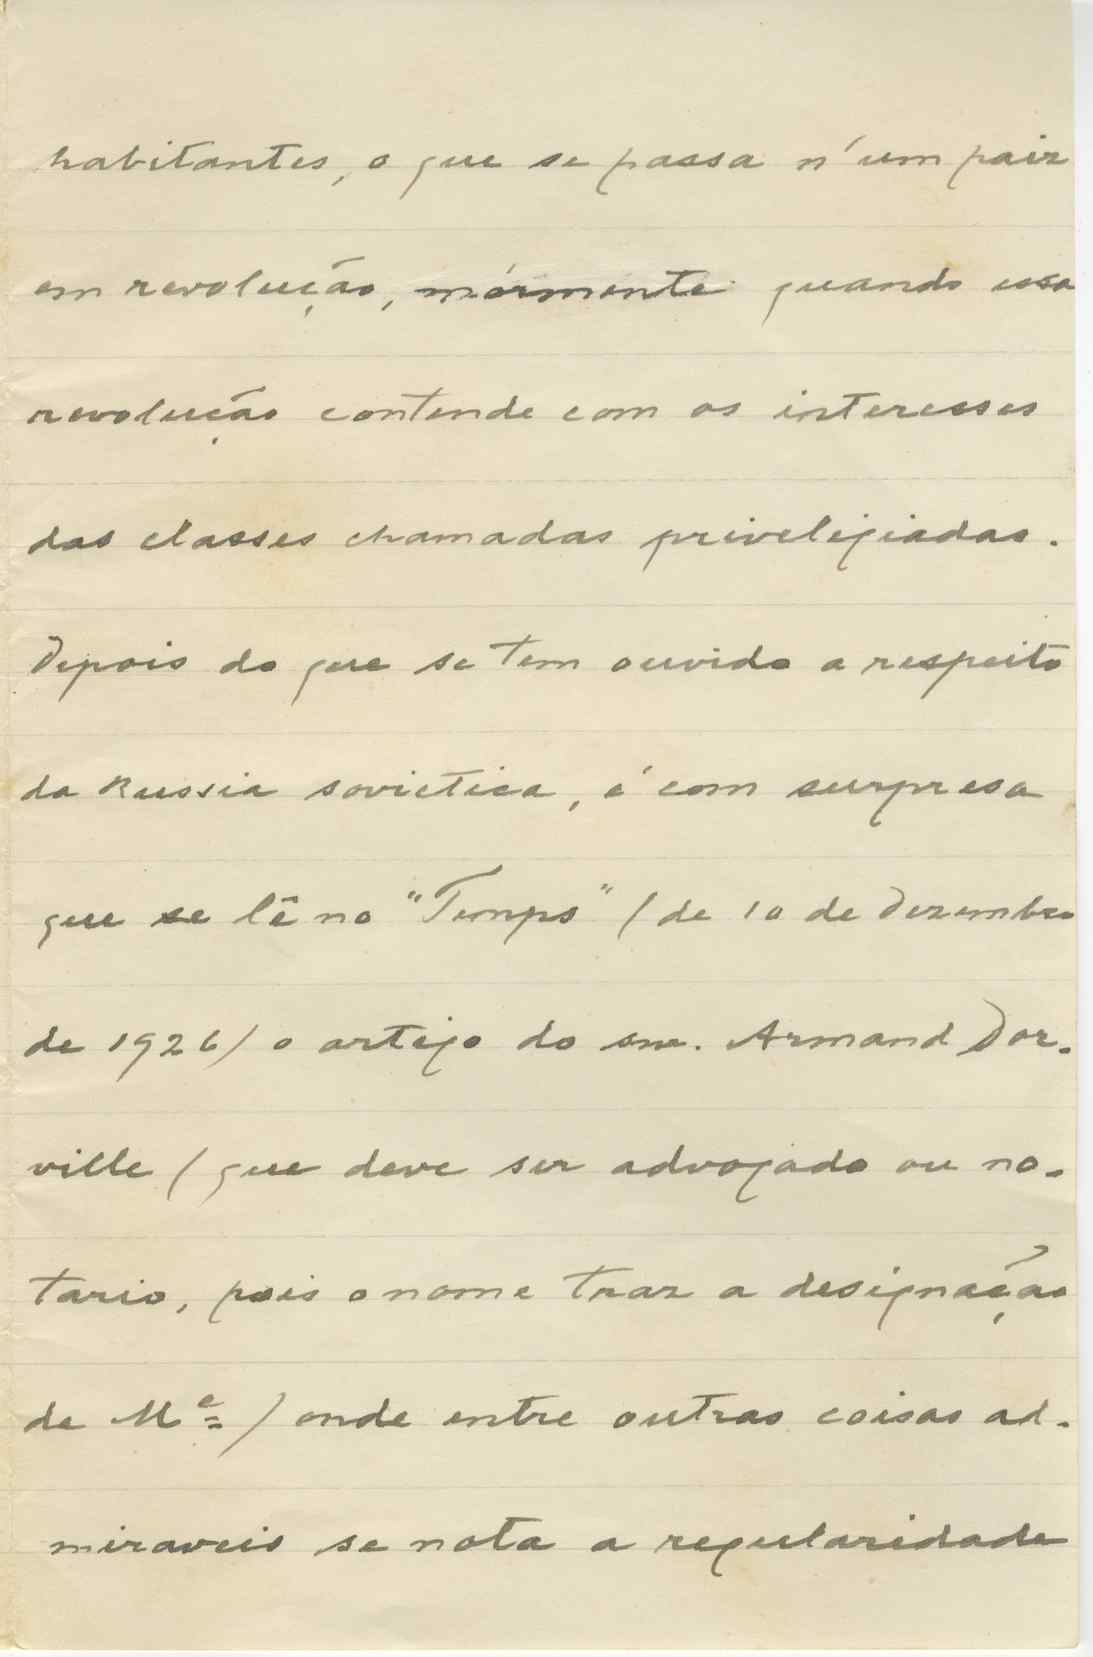 habitantes, o que se passa n'um paiz
em revolução, mórmente quando essa
revolução contende com os interesses
das classes chamadas priveligiadas.
Depois do que se tem ouvido a respeito
da Russia sovietica, é com surpresa
que se lê no "Temps" (de 10 de Dezembro
de 1926) o artigo do snr. Armand Dor-
ville (que deve ser advogado ou no-
tario, pois o nome traz a designação
de Mᵉ) onde entre outras coisas ad-
miraveis se nota a regularidade